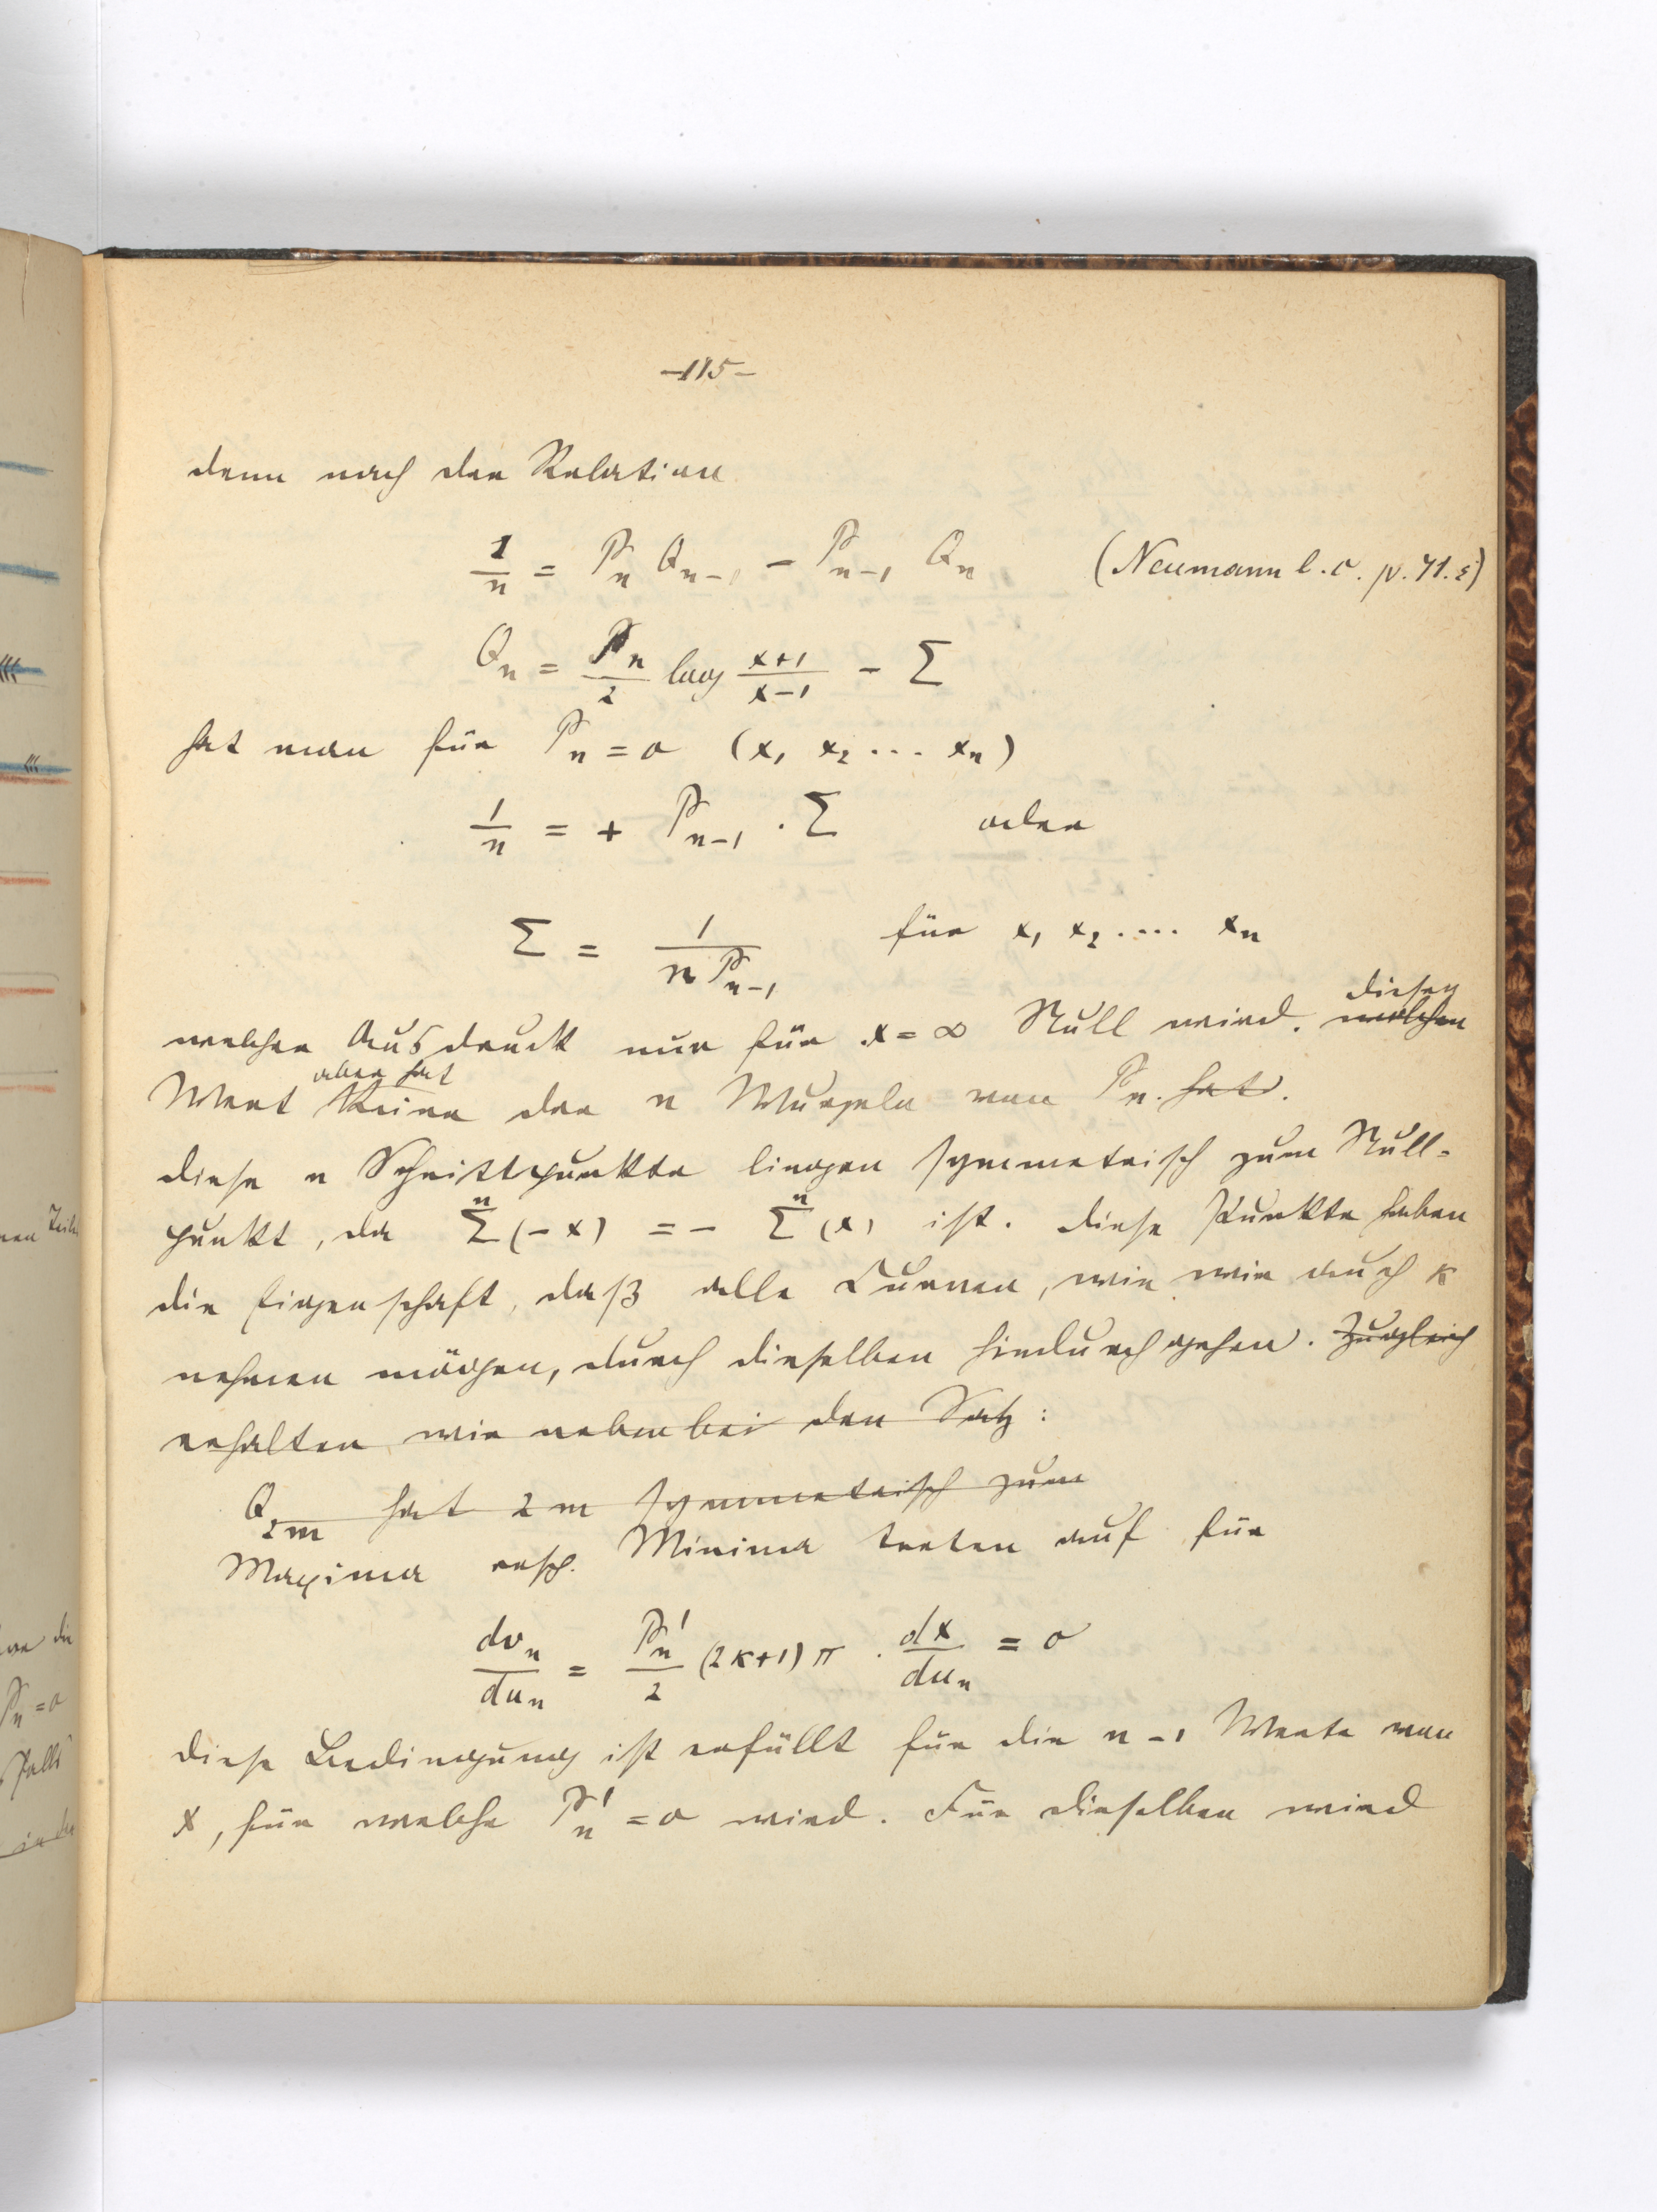 -115-
denn nach der Relation
1/n = Pn Qn-1 - Pn-1 Qn (Neumann l.c. p. 71. ε)
Qn = Pn/2 log x+1/x-1 - Σ
hat man für Pn = 0 (x1 x2 ... xn)
1/n = + Pn-1 . Σ oder
Σ = 1/n Pn-1 für x1 x2 .... xn
diesen
welcher Ausdruck nur für x = ∞ Null wird. welchen
aber hat
Wert keine der n Wurzeln von Pn. hat.
diese n Schnittpunkte liegen symmetrisch zum Null-
punkt, da Σn (-x) = - Σn (x) ist. diese Punkte haben
die Eigenschaft, daß alle Curven, wie wir auch κ
nehmen mögen, durch dieselben hindurchgehen. Zugleich
erhalten wir nebenbei den Satz:
Q2m hat 2m symmetrisch zum
Maxima resp. Minima treten auf für
dvn/dun = Pn'/2 (2κ+1)π . dx/dun = 0
diese Bedingung ist erfüllt für die n-1 Werte von
x, für welche Pn' = 0 wird. Für dieselben wird
nen Teile
Pn = 0
falls
in der